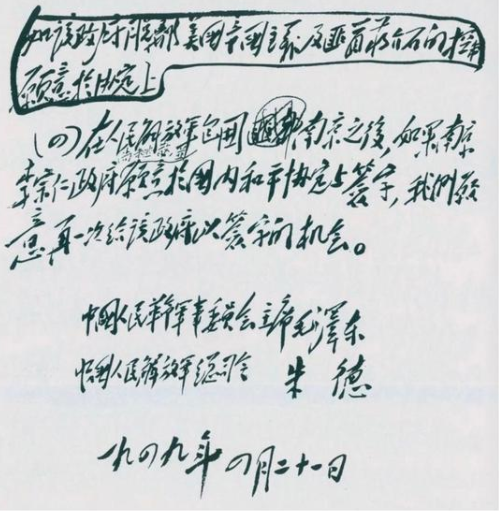 如該政府 美國帝國主義及匪首蒋介石的控制
願意於协定上
(四)在人民解放軍包囲南京之後,如果南京
尚未逃散,並
李宗仁政府願意於國内和平协定上簽字,我們願
意再一次给該政府以簽字的机会。
中國人民革命軍事委員会主席毛澤东
中國人民解放軍總司令 朱德
一九四九年四月二十一日